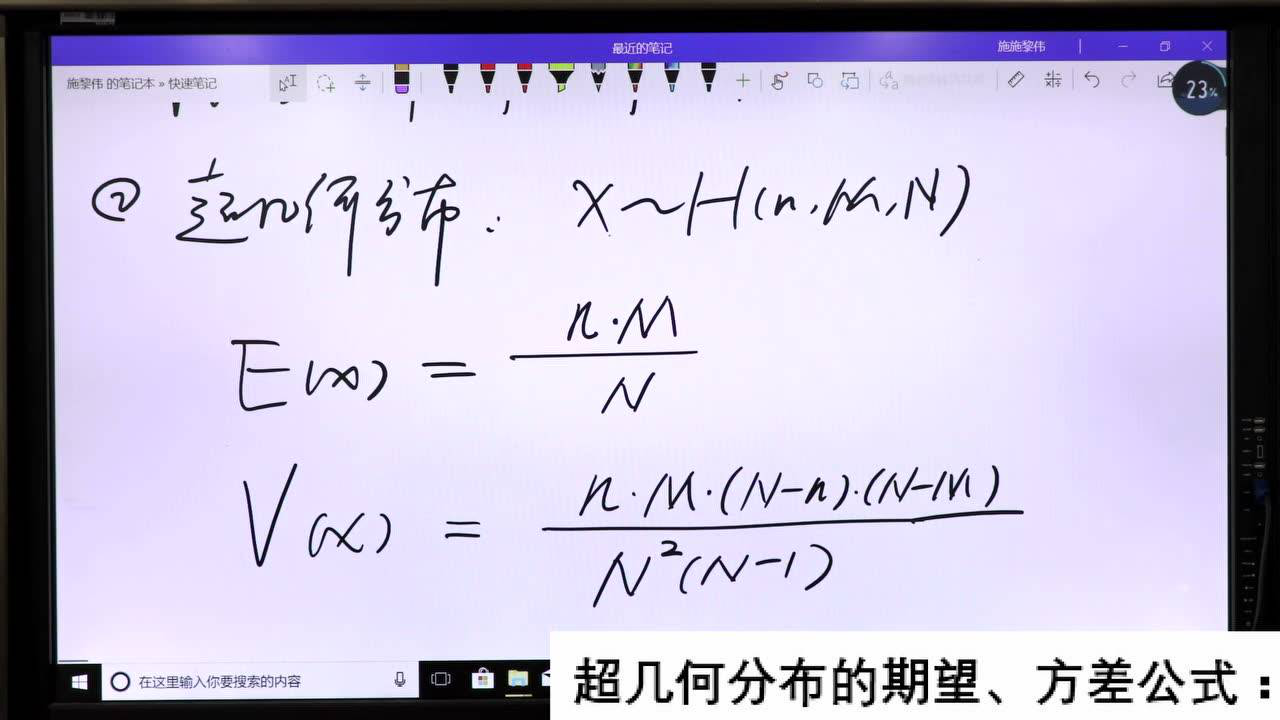 最近的笔记
施施黎伟
施黎伟 的笔记本 » 快速笔记
23%
② 超几何分布: X~H(n,M,N)
E(x) = n·M / N
V(x) = n·M·(N-n)·(N-M) / N²(N-1)
在这里输入你要搜索的内容
超几何分布的期望、方差公式：